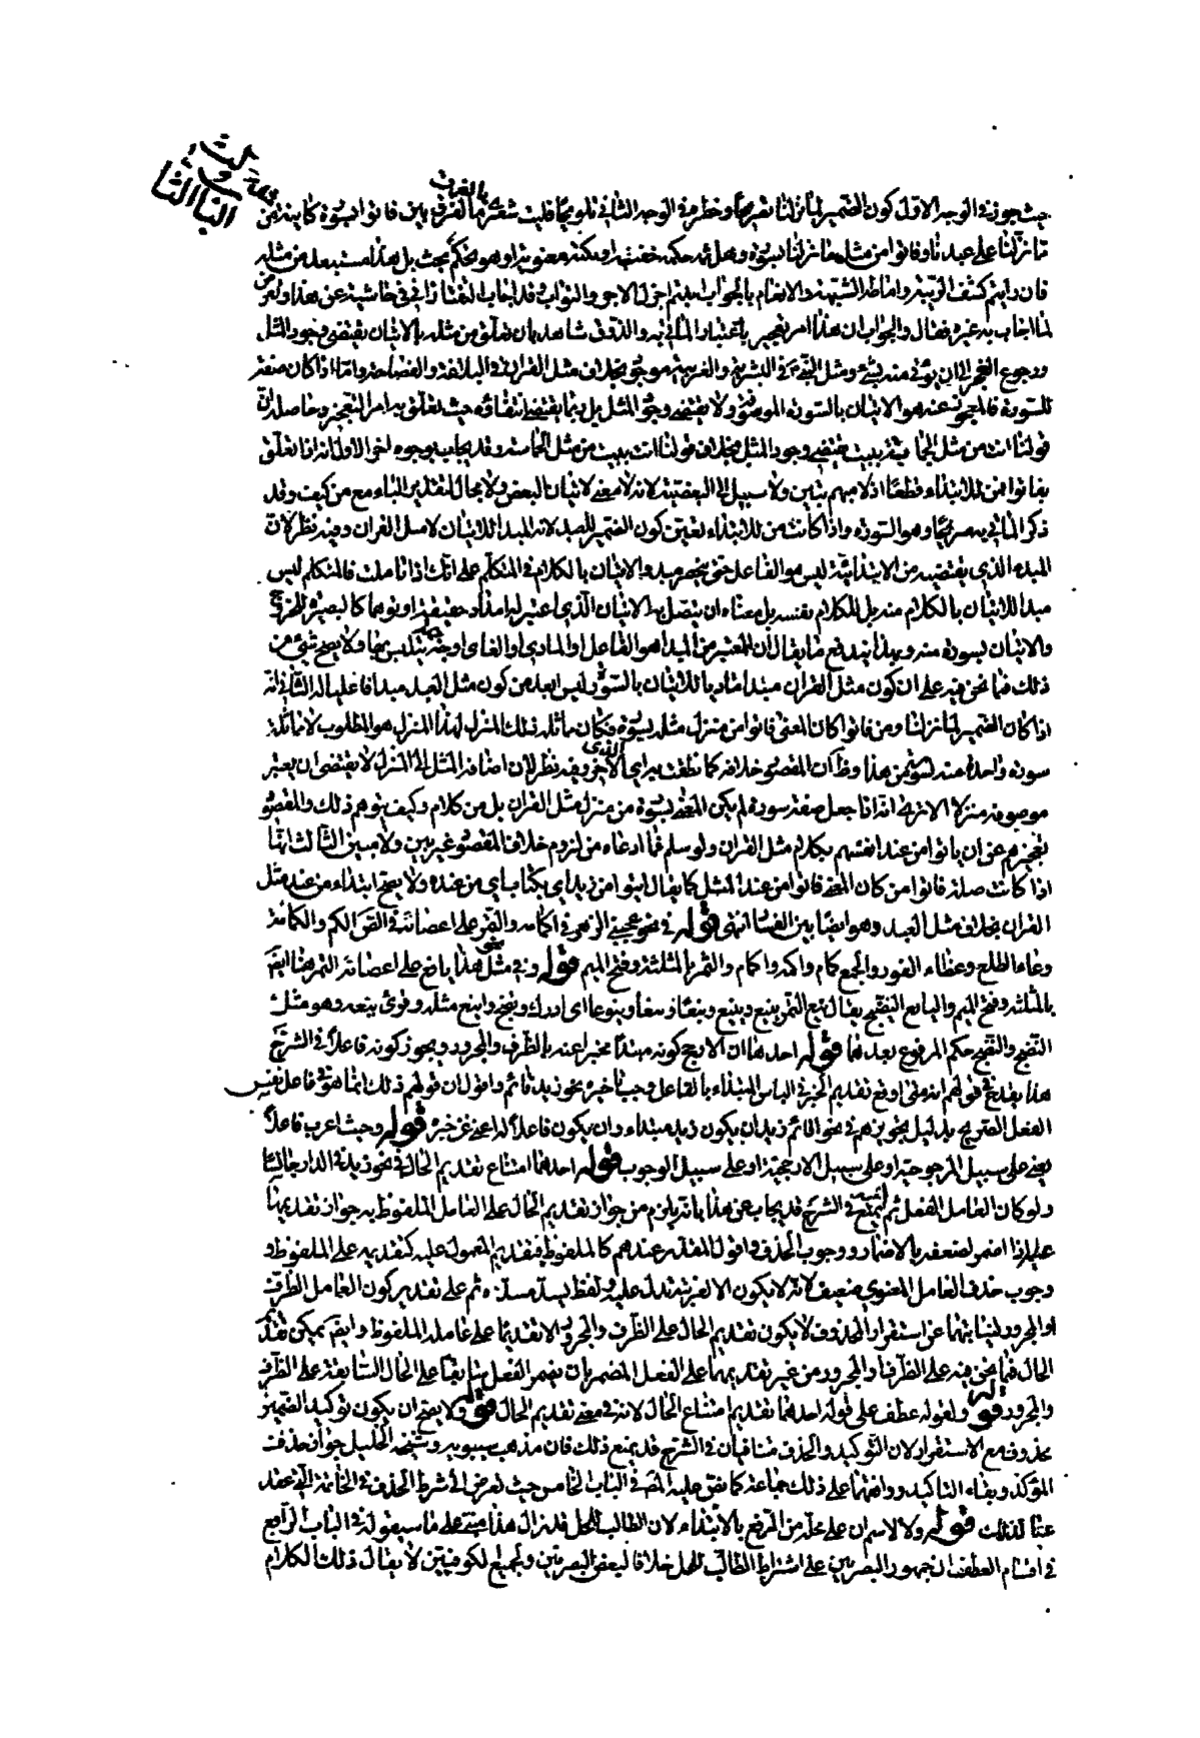 حيث جوز في الوجه الاول كون الضمير لما نزلنا تصريحا وحظره في الوجه الثاني تلويحا فليت شعري ما الفرق بين فاتوا بسورة كاينة من
ما نزلنا على عبدنا وفاتوا من مثل ما نزلنا بسورة وهل ثمه حكمة خفية او نكتة معنوية او هو تحكم بحت بل هذا مستبعد من مثله
فان رايتم كشف الريبة واماطة الشبهة والانعام بالجواب اثبتم اجزل الاجر والثواب وقد اجاب التفتازاني في حاشيته عن هذا
لما اجاب به غيره فقال والجواب ان هذا امر تعجيز باعتبار الماتي به والذوق شاهد بان تعلق من مثله بالاتيان يقتضي وجود المثل
ورجوع العجز الى ان يوتى منه بشيء ومثل النبي في البشرية والعربية موجود بخلاف مثل القران في البلاغة والفصاحة واما اذا كان صفة
للسورة فالمعجوز عنه هو الاتيان بالسورة الموصوفة ولا يقتضي وجود المثل بل ربما يقتضي انتفاؤه حيث تعلق به امر التعجيز وحاصله ان
قولنا ائت من مثل الحماسة ببيت يقتضي وجود المثل بخلاف قولنا ائت ببيت من مثل الحماسة وقد يجاب بوجوه اخر الاول انه اذا تعلق
بفاتوا فمن للابتداء قطعا اذ لا مبهم يبين ولا سبيل الى البعضية لانه لا معنى لاتيان البعض ولا مجال لتقدير الباء مع من كيف وقد
ذكر الماتي به صريحا وهو السورة واذا كانت من للابتداء تعين كون الضمير للعبد لانه المبدا للاتيان لا مثل القران وفيه نظر لان
المبدا الذي يقتضيه من الابتدائية ليس هو الفاعل حتى ينحصر مبدا الاتيان بالكلام في المتكلم على انك اذا تاملت فالمتكلم ليس
مبدا للاتيان بالكلام منه بل للكلام نفسه بل معناه ان يتصل به الاتيان الذي اعتبر له امتداد حقيقة او توهما كالبصرة للخروج
والاتيان بسورة منه وبهذا يندفع ما يقال ان المعتبر من المبدا هو الفاعل او المادي او الغاي او جهة يتلبس بها ولا يصح شيء من
ذلك فيما نحن فيه على ان كون مثل القران مبدا ماديا للاتيان بالسورة ليس ابعد من كون مثل العبد مبدا فاعليا له الثاني انه
اذا كان الضمير لما نزلنا ومن فاتوا كان المعنى فاتوا من منزل مثله بسورة فكان مماثلة ذلك المنزل لهذا المنزل هو المطلوب لا مماثلة
سورة واحدة منه لسورة من هذا وظاهر ان المقصود خلافه كما نطقت به الاي الاخر وفيه نظر لان اضافة المثل الى المنزل لا يقتضي ان يعتبر
موصوفه منزلا الا ترى انه اذا جعل صفة سورة لم يكن المعنى بسورة من منزل مثل القران بل من كلام وكيف يتوهم ذلك والمقصود
تعجيزهم عن ان ياتوا من عند انفسهم بكلام مثل القران ولو سلم فما ادعاه من لزوم خلاف المقصود غير بين ولا مبين الثالث انها
اذا كانت صلة فاتوا من كان المعنى فاتوا من عند المثل كما يقال ايتوا من زيد اي بكتاب اي من عنده ولا يصح ابتداء من عند مثل
القران بخلاف مثل العبد وهو ايضا بين الفساد انتهى قوله في نحو عجبني الزهر في اكمامه والثمر على اغصانه في القران الكم والكمامة
وعاء الطلع وغطاء النور والجمع كمام واكمة واكمام والثمر بالمثلثة وفتح الميم قوله وفي مثل هذا يانع على اغصانه الثمر هنا ايضا
بالمثلثة وفتح الميم واليانع النضيج يقال ينع الثمر يينع وينع وينعا وينعا وينوعا اي ادرك ونضج واينع مثله وقرئ ينعه وهو مثل
النضج والنضج حكم المرفوع بعدهما قوله احدها ان الارجح كونه مبتدا مخبرا عنه بالظرف والمجرور ويجوز كونه فاعلا في الشرح
هذا يقدح في قولهم انه متى اوقع تقديم الخبر في الباس المبتداء بالفاعل وجب تاخيره نحو زيد قائم واقول ان قولهم ذلك انما هو في فاعل نفس
الفعل الصريح بدليل تجويزهم في نحو اقائم زيد ان يكون زيد مبتداء وان يكون فاعلا اغنى عن خبره قوله وحيث اعرب فاعلا
يعني على سبيل المرجوحية او على سبيل الارجحية او على سبيل الوجوب قوله احدهما امتناع تقديم الحال في نحو زيد في الدار جالسا
ولو كان العامل الفعل لم يمتنع في الشرح قد يجاب عن هذا بانه يلزم من جواز تقديم الحال على العامل الملفوظ به جواز تقديمها
عليه اذا اضمر لضعفه بالاضمار ووجوب الحذف واقول المقدر عندهم كالملفوظ فتقديم المعمول عليه كتقديمه على الملفوظ و
وجوب حذف العامل المعنوي ضعيف لانه لا يكون الا لقرينة تدل عليه ولفظ يسد مسده ثم على تقدير كون العامل الظرف
او المجرور لنيابتهما عن استقرار المحذوف لا يكون تقديم الحال على الظرف والمجرور الا تقديما على عامله الملفوظ وايضا يمكن تقديم
الحال فيما نحن فيه على الظرف او المجرور من غير تقديمها على الفعل المضمر بان يضمر الفعل سابقا على الحال السابقة على الظرف
والمجرور قوله ولقوله عطف على قوله احدهما تقديم امتناع الحال لانه في معنى تقديم الحال قوله ولا يصح ان يكون توكيد الضمير
محذوف مع الاستقرار لان التوكيد والحذف متنافيان في الشرح قد يمنع ذلك فان مذهب سيبويه وشيخه الخليل جواز حذف
المؤكد وبقاء التاكيد ووافقهما على ذلك جماعة كما نص عليه المص في الباب الخامس حيث تعرض الى شرط الحذف في الخاتمة التي عقد
هنا لذلك قوله ولا لاسم ان على محله من الرفع بالابتداء لان الطالب للمحل قد زال هذا مبني على ما سيقوله في الباب الرابع
في اقسام العطف ان جمهور البصريين على اشتراط الطالب للمحل خلافا لبعض البصريين ولجميع الكوفيين لا يقال ذلك الكلام